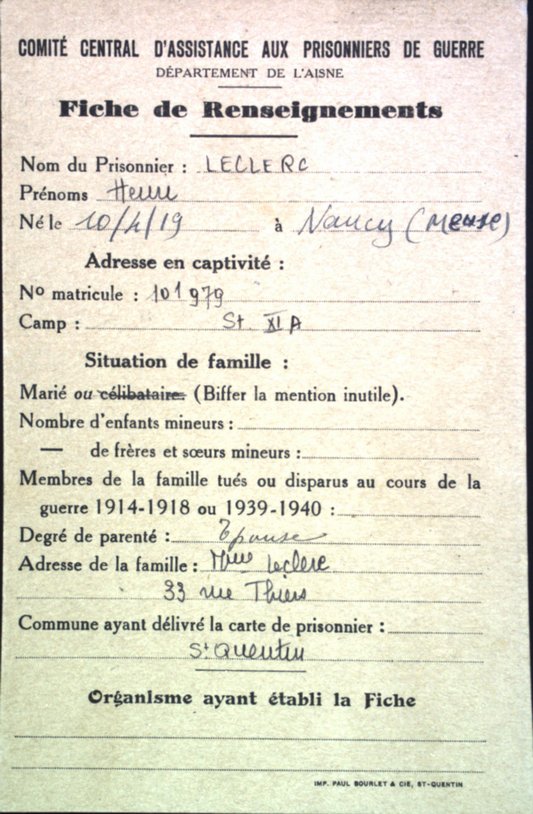 COMITÉ CENTRAL D'ASSISTANCE AUX PRISONNIERS DE GUERRE
DÉPARTEMENT DE L'AISNE
Fiche de Renseignements
Nom du Prisonnier : LECLERC
Prénoms Henri
Né le 10/4/19 à Nancy (Meuse)
Adresse en captivité :
No matricule : 101979
Camp : St. XI A
Situation de famille :
Marié ou célibataire (Biffer la mention inutile).
Nombre d'enfants mineurs :
— de frères et sœurs mineurs :
Membres de la famille tués ou disparus au cours de la
guerre 1914-1918 ou 1939-1940 :
Degré de parenté : Epouse
Adresse de la famille : Mme Leclerc
33 rue Thiers
Commune ayant délivré la carte de prisonnier :
St Quentin
Organisme ayant établi la Fiche
IMP. PAUL BOURLET & CIE, ST-QUENTIN